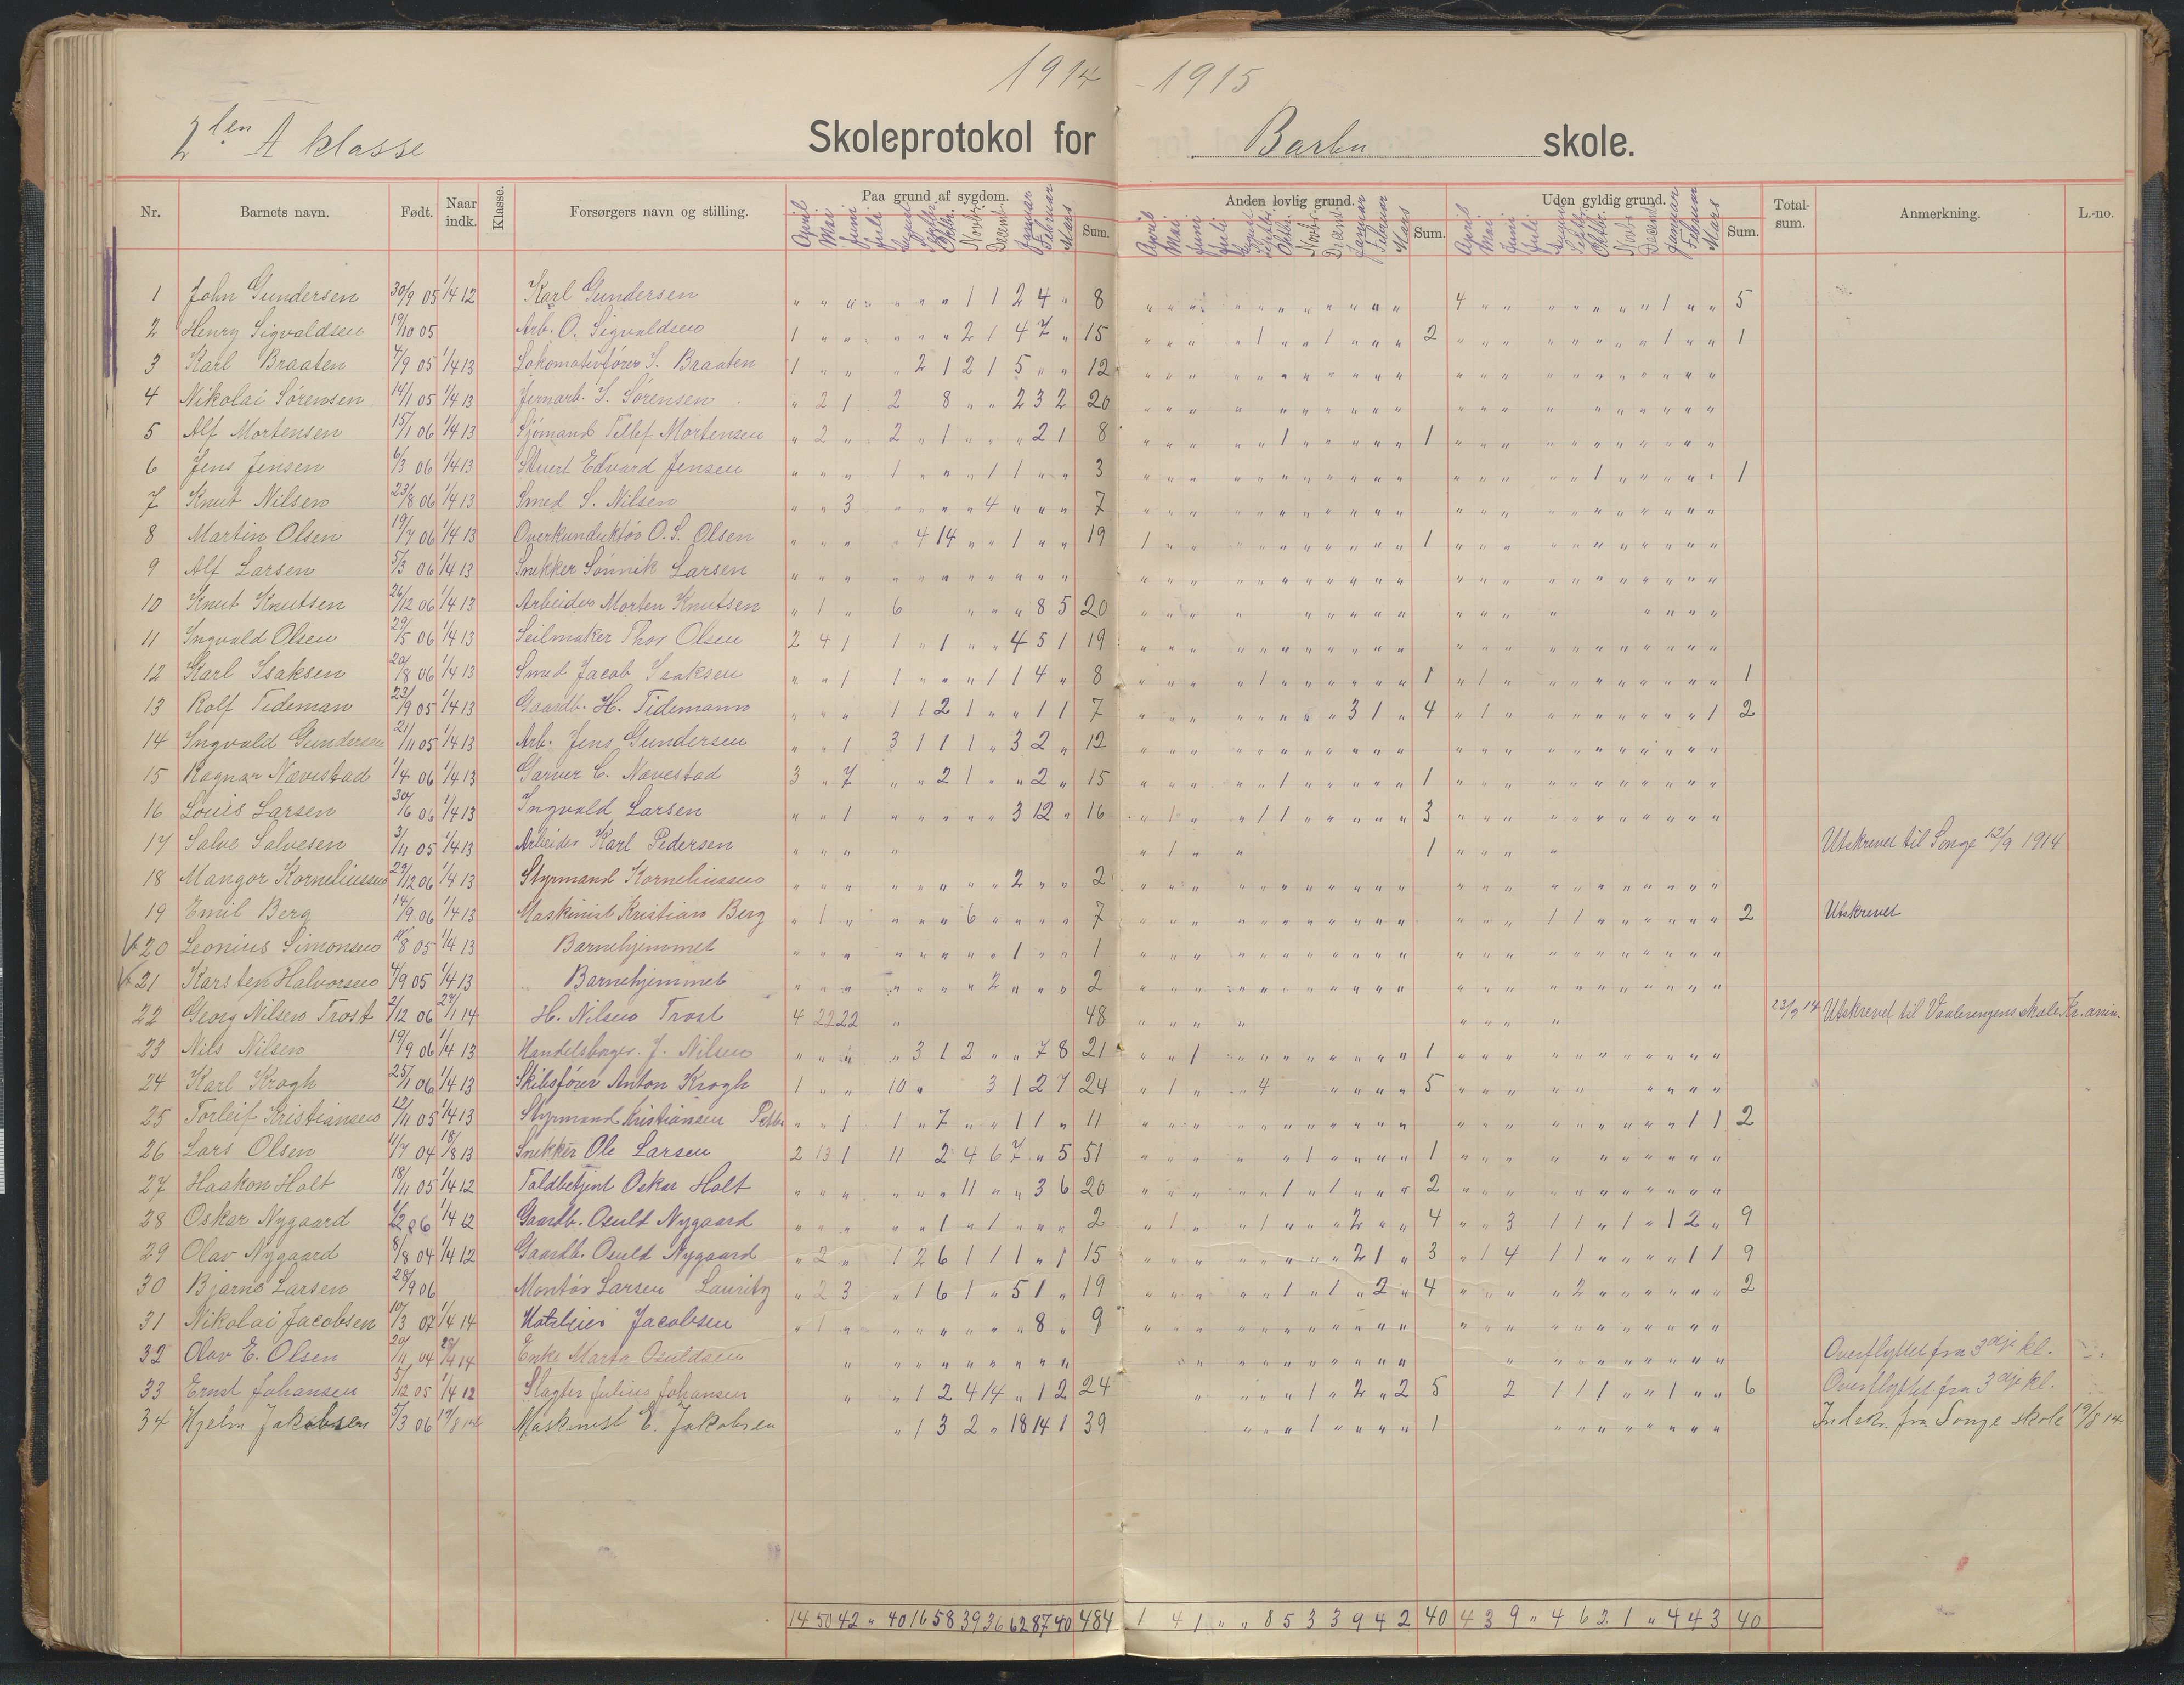 1914 - 1915
2den A klasse Skoleprotokol for Barbu skole.
Nr. Barnets navn. Født. Naar indk. Klasse. Forsørgers navn og stilling. Paa grund af sygdom. Sum. Anden lovlig grund. Sum. Uden gyldig grund. Sum. Total-sum. Anmerkning. L.-no.
April Mai Juni Juli August Septbr. Oktbr. Novbr. Decemb. Januar Februar Mars
1 John Gundersen 30/9 05 1/4 12 Karl Gundersen " " " " " " 1 1 2 4 " 8 4 1 5
2 Henry Sigvaldsen 19/10 05 Arb. O. Sigvaldsen 1 2 1 4 7 " 15 1 1 2 1 1
3 Karl Braaten 4/9 05 1/4 13 Lokomotivfører S. Braaten 1 " " " 2 1 2 1 5 " " 12
4 Nikolai Sørensen 14/1 05 1/4 13 Jernarb. S. Sørensen " 2 1 2 8 " " 2 3 2 20
5 Alf Mortensen 15/1 06 1/4 13 Sjømand Tellef Mortensen " 2 " 2 " 1 " " " 2 1 8 1 1
6 Jens Jensen 6/3 06 1/4 13 Stuert Edvard Jensen " " " 1 " " " 1 1 " " 3 1 1
7 Knut Nilsen 23/8 06 1/4 13 Smed S. Nilsen " " 3 " " " " 4 " " " 7
8 Martin Olsen 19/7 06 1/4 13 Overkunduktør O. S. Olsen " " " " 4 14 " " 1 " " 19 1 1
9 Alf Larsen 5/3 06 1/4 13 Snekker Sønnik Larsen
10 Knut Knutsen 26/12 06 1/4 13 Arbeider Morten Knutsen " 1 " 6 " " " 8 5 20
11 Ingvald Olsen 29/5 06 1/4 13 Seilmaker Thor Olsen 2 4 1 1 " 1 " " 4 5 1 19
12 Karl Isaksen 20/8 06 1/4 13 Smed Jacob Isaksen " " 1 1 " " " 1 1 4 " 8 1 1 1 1
13 Rolf Tideman 23/9 05 1/4 13 Gaardb. H. Tidemann " " " 1 1 2 1 " " 1 1 7 3 1 4 1 1 2
14 Ingvald Gundersen 21/11 05 1/4 13 Arb. Jens Gundersen " " 1 3 1 1 1 " 3 2 " 12
15 Ragnar Nævestad 1/4 06 1/4 13 Garver C. Nævestad 3 " 7 " " 2 1 " " 2 " 15 1 1
16 Louis Larsen 30/6 06 1/4 13 Ingvald Larsen " " 1 " " " " " 3 12 " 16 1 1 1 3
17 Salve Salvesen 3/11 05 1/4 13 Arbeider Karl Pedersen " " " " 1 1 Utskrevet til Songe 12/9 1914
18 Mangor Korneliussen 29/12 06 1/4 13 Styrmand Korneliussen 2 2
19 Emil Berg 14/9 06 1/4 13 Maskinist Kristian Berg " 1 " " " " 6 " " " " 7 1 1 2 Utskrevet
20 Leonius Simonsen 10/8 05 1/4 13 Barnehjemmet 1 1
21 Karsten Halvorsen 4/9 05 1/4 13 Barnehjemmet 2 2
22 Georg Nilsen Trost 2/12 06 27/1 14 H. Nilsen Trost 4 22 22 " 48 23/9 14 Utskrevet til Vaalerengens skole Kr.ania.
23 Nils Nilsen 19/9 06 1/4 13 Handelsborger. J. Nilsen " " " " 3 1 2 " " 7 8 21 1 1
24 Karl Krogh 25/1 06 1/4 13 Skibsfører Anton Krogh 1 " " 10 " 3 1 2 7 24 1 4 5
25 Torleif Kristiansen 12/11 05 1/4 13 Styrmand Kristiansen " " 1 1 " 7 " " 1 1 " 11 1 1 2
26 Lars Olsen 11/7 04 18/8 13 Snekker Ole Larsen 2 13 1 11 2 4 6 7 " 5 51 1 1
27 Haakon Holt 18/11 05 1/4 12 Toldbetjent Oskar Holt " " " " " " 11 " " 3 6 20 1 1 2
28 Oskar Nygaard 1/4 12 Gaardb. Osuld Nygaard 1 1 2 1 1 2 4 3 1 1 1 1 2 9
29 Olav Nygaard 8/8 04 1/4 12 Gaardb. Osuld Nygaard " 2 " 1 2 6 1 1 1 " 1 15 2 1 3 1 4 1 1 1 1 9
30 Bjarne Larsen 28/9 06 Montør Larsen Lauritz " 2 3 " 1 6 1 " 5 1 " 19 1 1 2 4 2 2
31 Nikolai Jacobsen 10/3 07 1/4 14 Jacobsen " 1 " " " " " " " 8 " 9
32 Olav E. Olsen 20/11 04 14 Enke Marta Osuldsen Overflyttet fra 3dje kl.
33 Ernst Johansen 5/12 05 1/4 12 Slagter Julius Johansen " " 1 2 4 14 " 1 2 24 1 2 2 5 2 1 1 1 1 6 Overflyttet fra 3dje kl.
34 Hjelm Jakobsen 5/3 06 19/8 14 Maskinist E. Jakobsen " 1 3 2 " 18 14 1 39 1 1 Indskr. fra Songe skole 19/8 14
14 50 42 " 40 16 58 39 36 62 87 40 484 1 4 1 " " 8 5 3 3 9 4 2 40 4 3 9 " 4 6 2 1 " 4 4 3 40